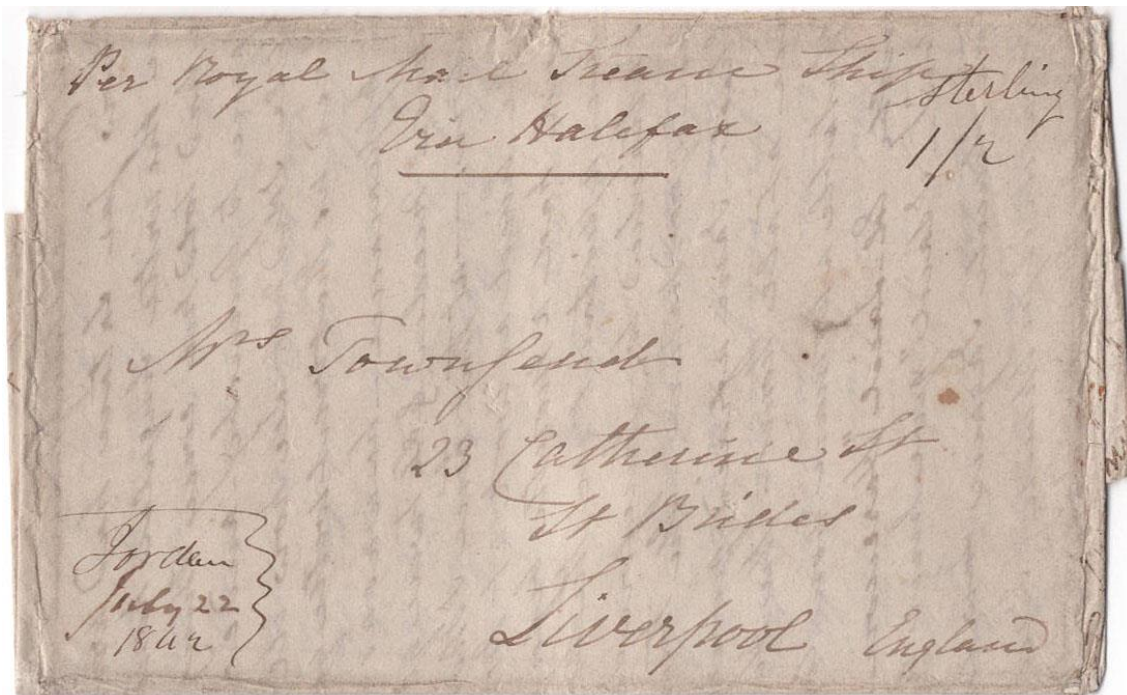 Per Royal Mail Steam Ship
Via Halifax
Sterling
1/2
Mrs Townsend
23 Catherine St
St Brides
Liverpool England
Jordan
July 22
1842